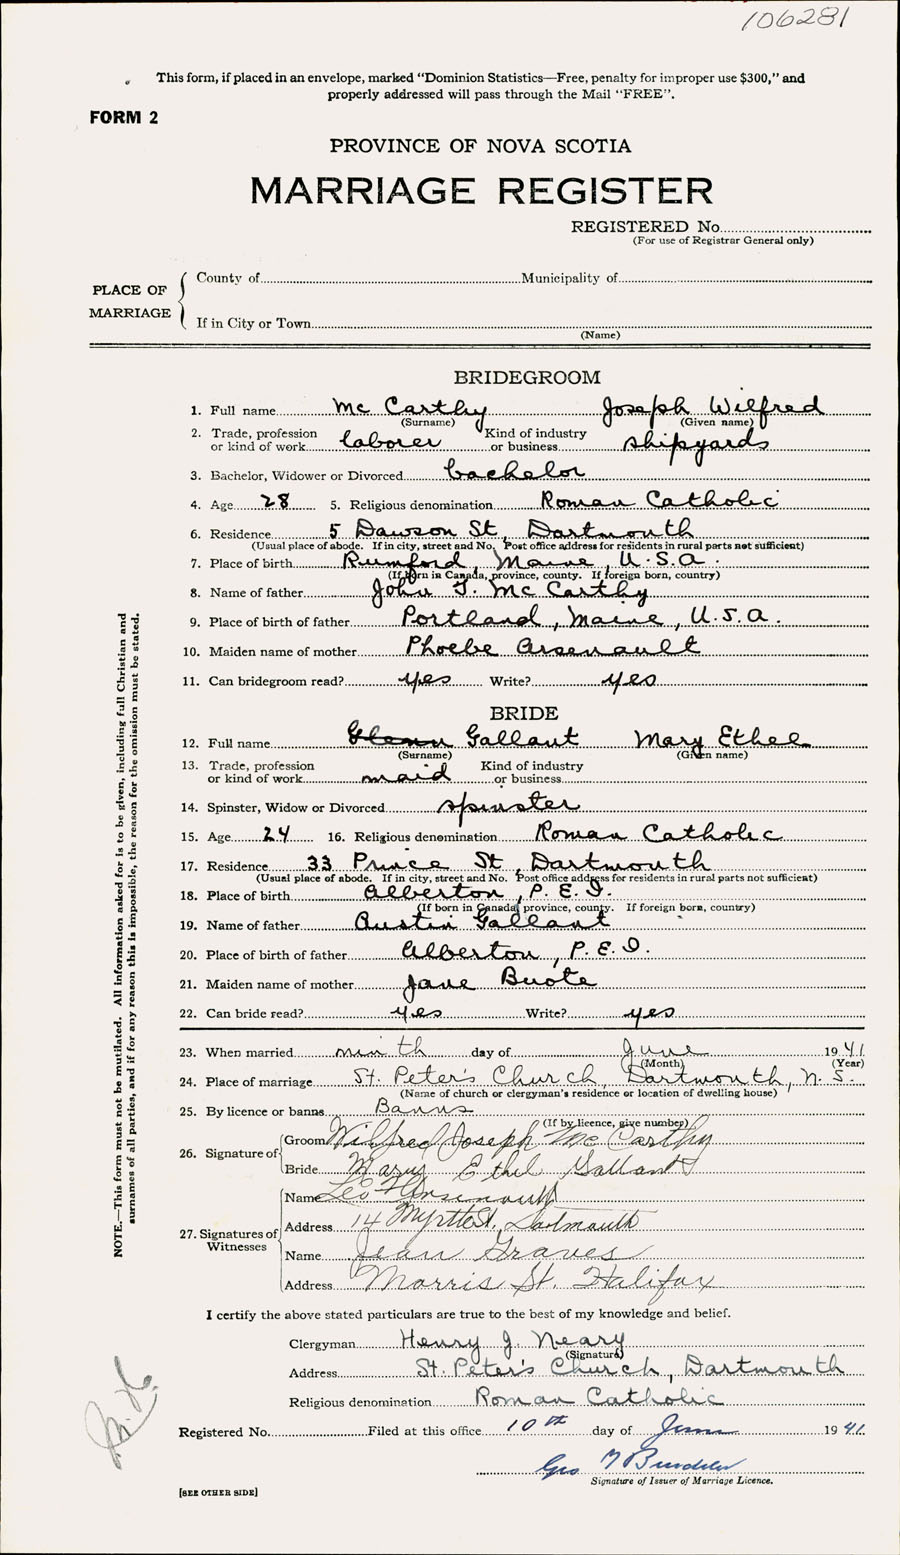 106281
This form, if placed in an envelope, marked "Dominion Statistics—Free, penalty for improper use $300," and
properly addressed will pass through the Mail "FREE".
FORM 2
PROVINCE OF NOVA SCOTIA
MARRIAGE REGISTER
REGISTERED No.
(For use of Registrar General only)
PLACE OF MARRIAGE
County of Municipality of
If in City or Town
(Name)
BRIDEGROOM
1. Full name Mc Carthy Joseph Wilfred
(Surname) (Given name)
2. Trade, profession or kind of work laborer Kind of industry or business shipyards
3. Bachelor, Widower or Divorced bachelor
4. Age 28 5. Religious denomination Roman Catholic
6. Residence 5 Dawson St, Dartmouth
(Usual place of abode. If in city, street and No. Post office address for residents in rural parts not sufficient)
7. Place of birth Rumford, Maine, U.S.A.
(If born in Canada, province, county. If foreign born, country)
8. Name of father John T. Mc Carthy
9. Place of birth of father Portland, Maine, U.S.A.
10. Maiden name of mother Phoebe Arsenault
11. Can bridegroom read? yes Write? yes
BRIDE
12. Full name Gallant Mary Ethel
(Surname) (Given name)
13. Trade, profession or kind of work maid Kind of industry or business
14. Spinster, Widow or Divorced spinster
15. Age 24 16. Religious denomination Roman Catholic
17. Residence 33 Prince St, Dartmouth
(Usual place of abode. If in city, street and No. Post office address for residents in rural parts not sufficient)
18. Place of birth Alberton, P.E.I.
(If born in Canada, province, county. If foreign born, country)
19. Name of father Austin Gallant
20. Place of birth of father Alberton, P.E.I.
21. Maiden name of mother Jane Buote
22. Can bride read? yes Write? yes
23. When married ninth day of June 1941
(Month) (Year)
24. Place of marriage St. Peter's Church, Dartmouth, N.S.
(Name of church or clergyman's residence or location of dwelling house)
25. By licence or banns Banns
(If by licence, give number)
26. Signature of
Groom Wilfred Joseph Mc Carthy
Bride Mary Ethel Gallant
27. Signatures of Witnesses
Name Leo Arsenault
Address 14 Myrtle St, Dartmouth
Name Jean Graves
Address Morris St. Halifax
I certify the above stated particulars are true to the best of my knowledge and belief.
Clergyman Henry J. Neary
(Signature)
Address St. Peter's Church, Dartmouth
Religious denomination Roman Catholic
Registered No. Filed at this office 10th day of June 1941.
Geo
Signature of Issuer of Marriage Licence.
[SEE OTHER SIDE]
NOTE.—This form must not be mutilated. All information asked for is to be given, including full Christian and
surnames of all parties, and if for any reason this is impossible, the reason for the omission must be stated.